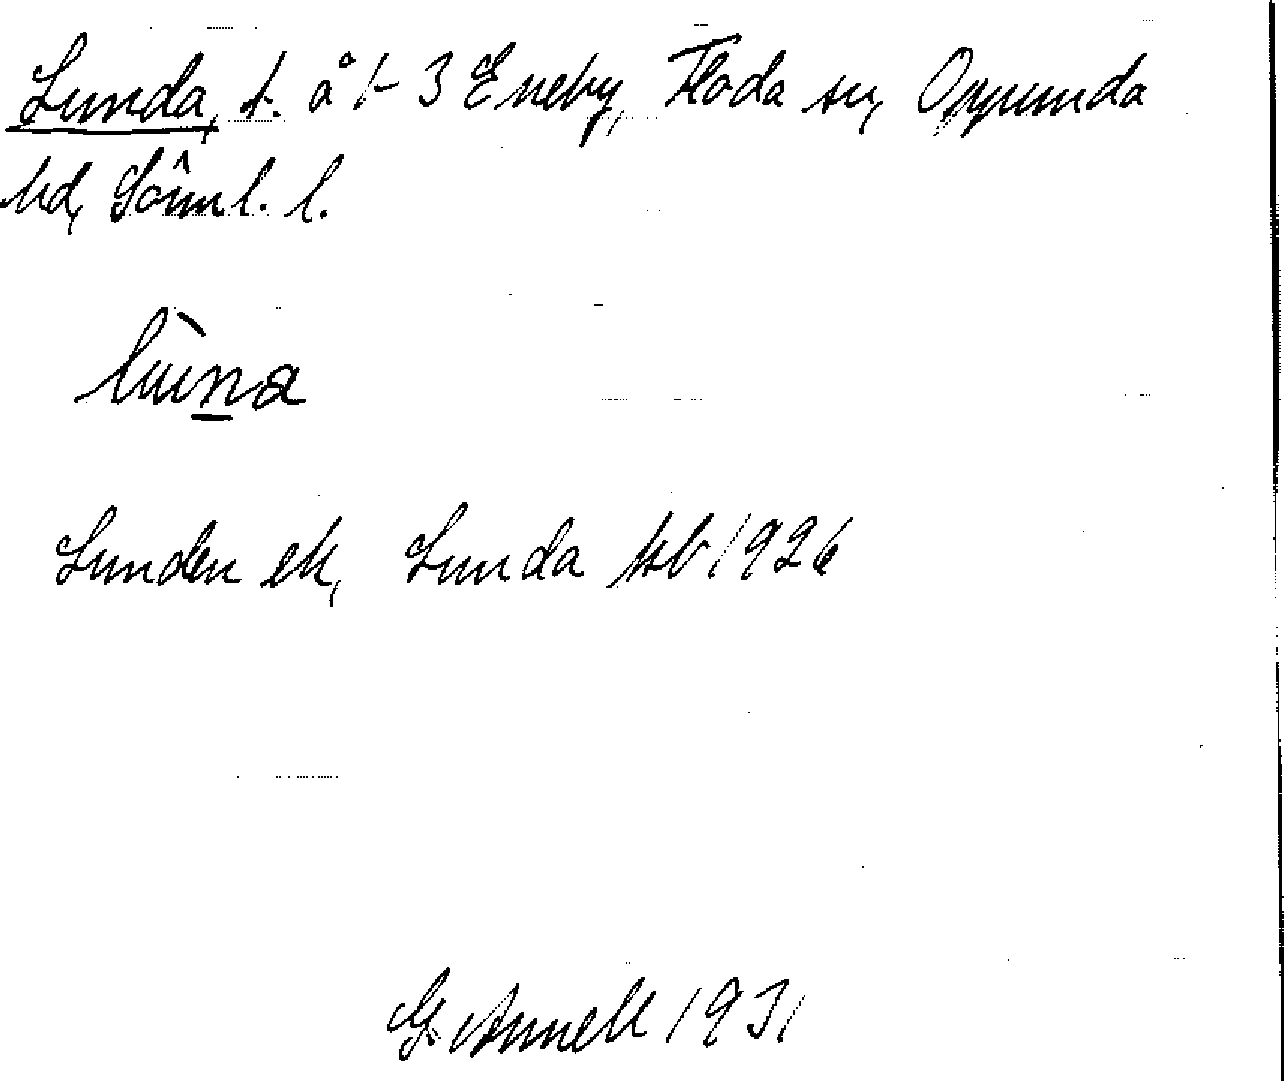 Lunda, t. å 1-3 Eneby, Floda sn, Oppunda
hd, Sörml. l.
lùna
Lunden ek, Lunda kb 1926
G. Annell 1931